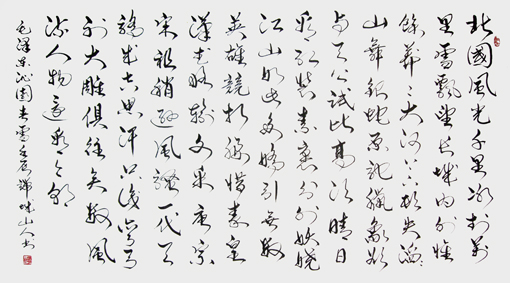 北國風光千里冰封萬
里雪飄望長城內外惟
餘莽〻大河上下頓失滔〻
山舞銀蛇原馳蠟象欲
與天公試比高須晴日
看紅裝素裹分外妖嬈
江山如此多嬌引無數
英雄競折腰惜秦皇
漢武略輸文采唐宗
宋祖稍遜風騷一代天
驕成吉思汗只識彎弓
射大雕俱往矣數風
流人物還看今朝
毛澤東沁園春雪壬辰山人書